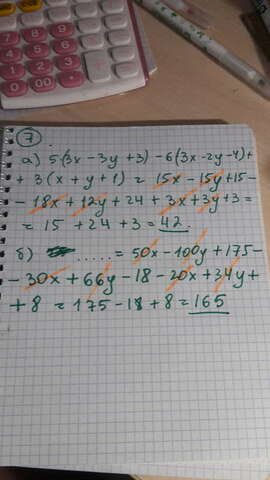 7.
а) 5(3x - 3y + 3) - 6(3x - 2y - 4) +
+ 3(x + y + 1) = 15x - 15y + 15 -
- 18x + 12y + 24 + 3x + 3y + 3 =
= 15 + 24 + 3 = 42.
б) ..... = 50x - 100y + 175 -
- 30x + 66y - 18 - 20x + 34y +
+ 8 = 175 - 18 + 8 = 165